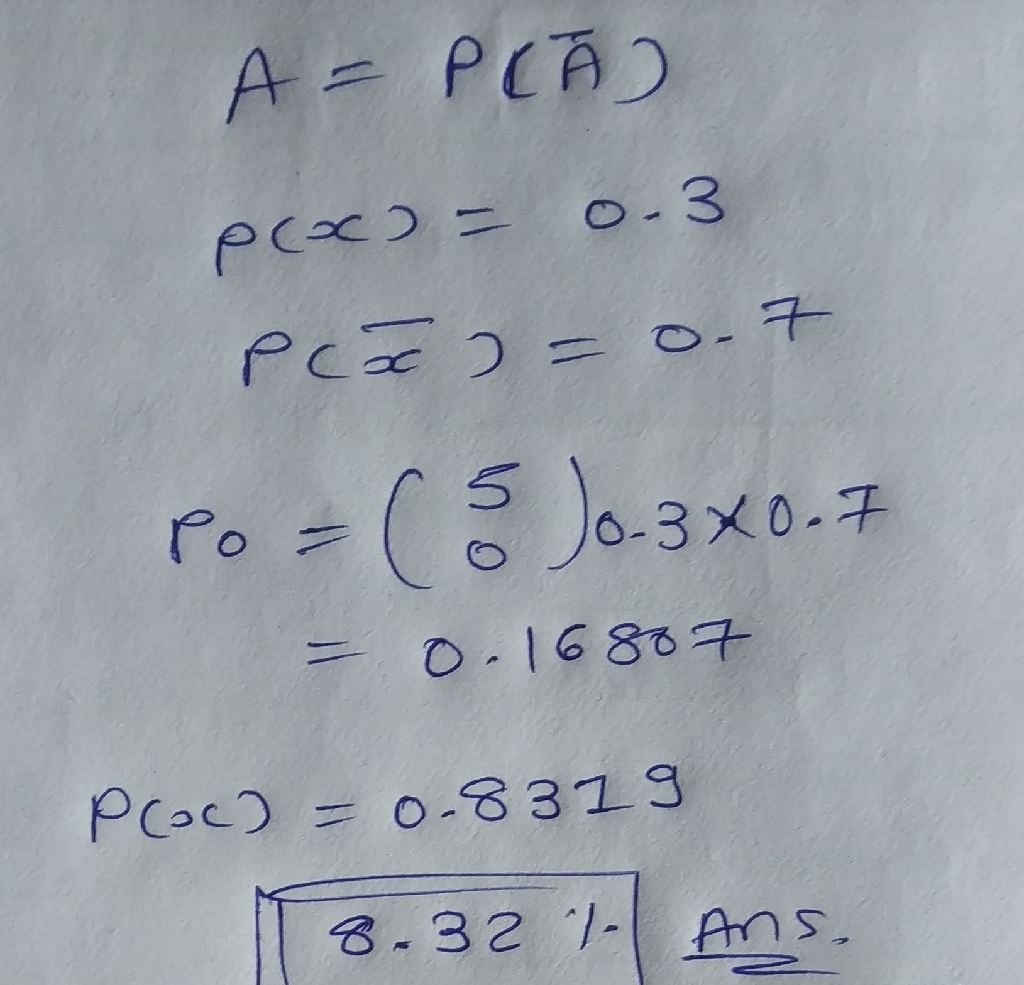 A = P(Ā)
p(x) = 0.3
P(x̄) = 0.7
Po = (5 0) 0.3 × 0.7
= 0.16807
P(x) = 0.8319
8.32 % Ans.